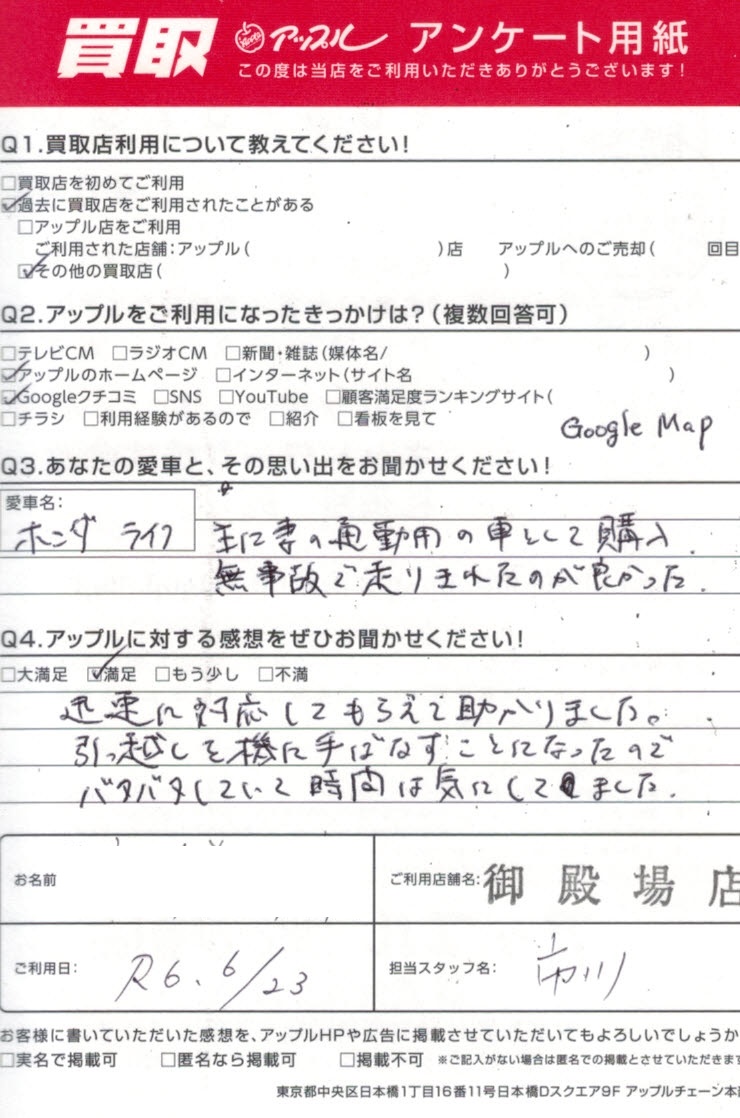 買取 アップル アンケート用紙
この度は当店をご利用いただきありがとうございます!
Q1.買取店利用について教えてください!
□買取店を初めてご利用
☑過去に買取店をご利用されたことがある
□アップル店をご利用
ご利用された店舗:アップル( )店 アップルへのご売却( 回目
☑その他の買取店( )
Q2.アップルをご利用になったきっかけは?(複数回答可)
□テレビCM □ラジオCM □新聞・雑誌(媒体名/ )
☑アップルのホームページ □インターネット(サイト名 )
☑Googleクチコミ □SNS □YouTube □顧客満足度ランキングサイト(
□チラシ □利用経験があるので □紹介 □看板を見て
Google Map
Q3.あなたの愛車と、その思い出をお聞かせください!
愛車名:
ホンダ ライフ 主に妻の通勤用の車として購入.
無事故で走りきれたのが良かった.
Q4.アップルに対する感想をぜひお聞かせください!
□大満足 ☑満足 □もう少し □不満
迅速に対応してもらえて助かりました。
引っ越しを機に手ばなすことになったので
バタバタしていて時間は気にしてました.
お名前 ご利用店舗名: 御殿場店
ご利用日: R6.6/23 担当スタッフ名: 市川
お客様に書いていただいた感想を、アップルHPや広告に掲載させていただいてもよろしいでしょうか
□実名で掲載可 □匿名なら掲載可 □掲載不可 ※ご記入がない場合は匿名での掲載とさせていただきます
東京都中央区日本橋1丁目16番11号日本橋Dスクエア9F アップルチェーン本部